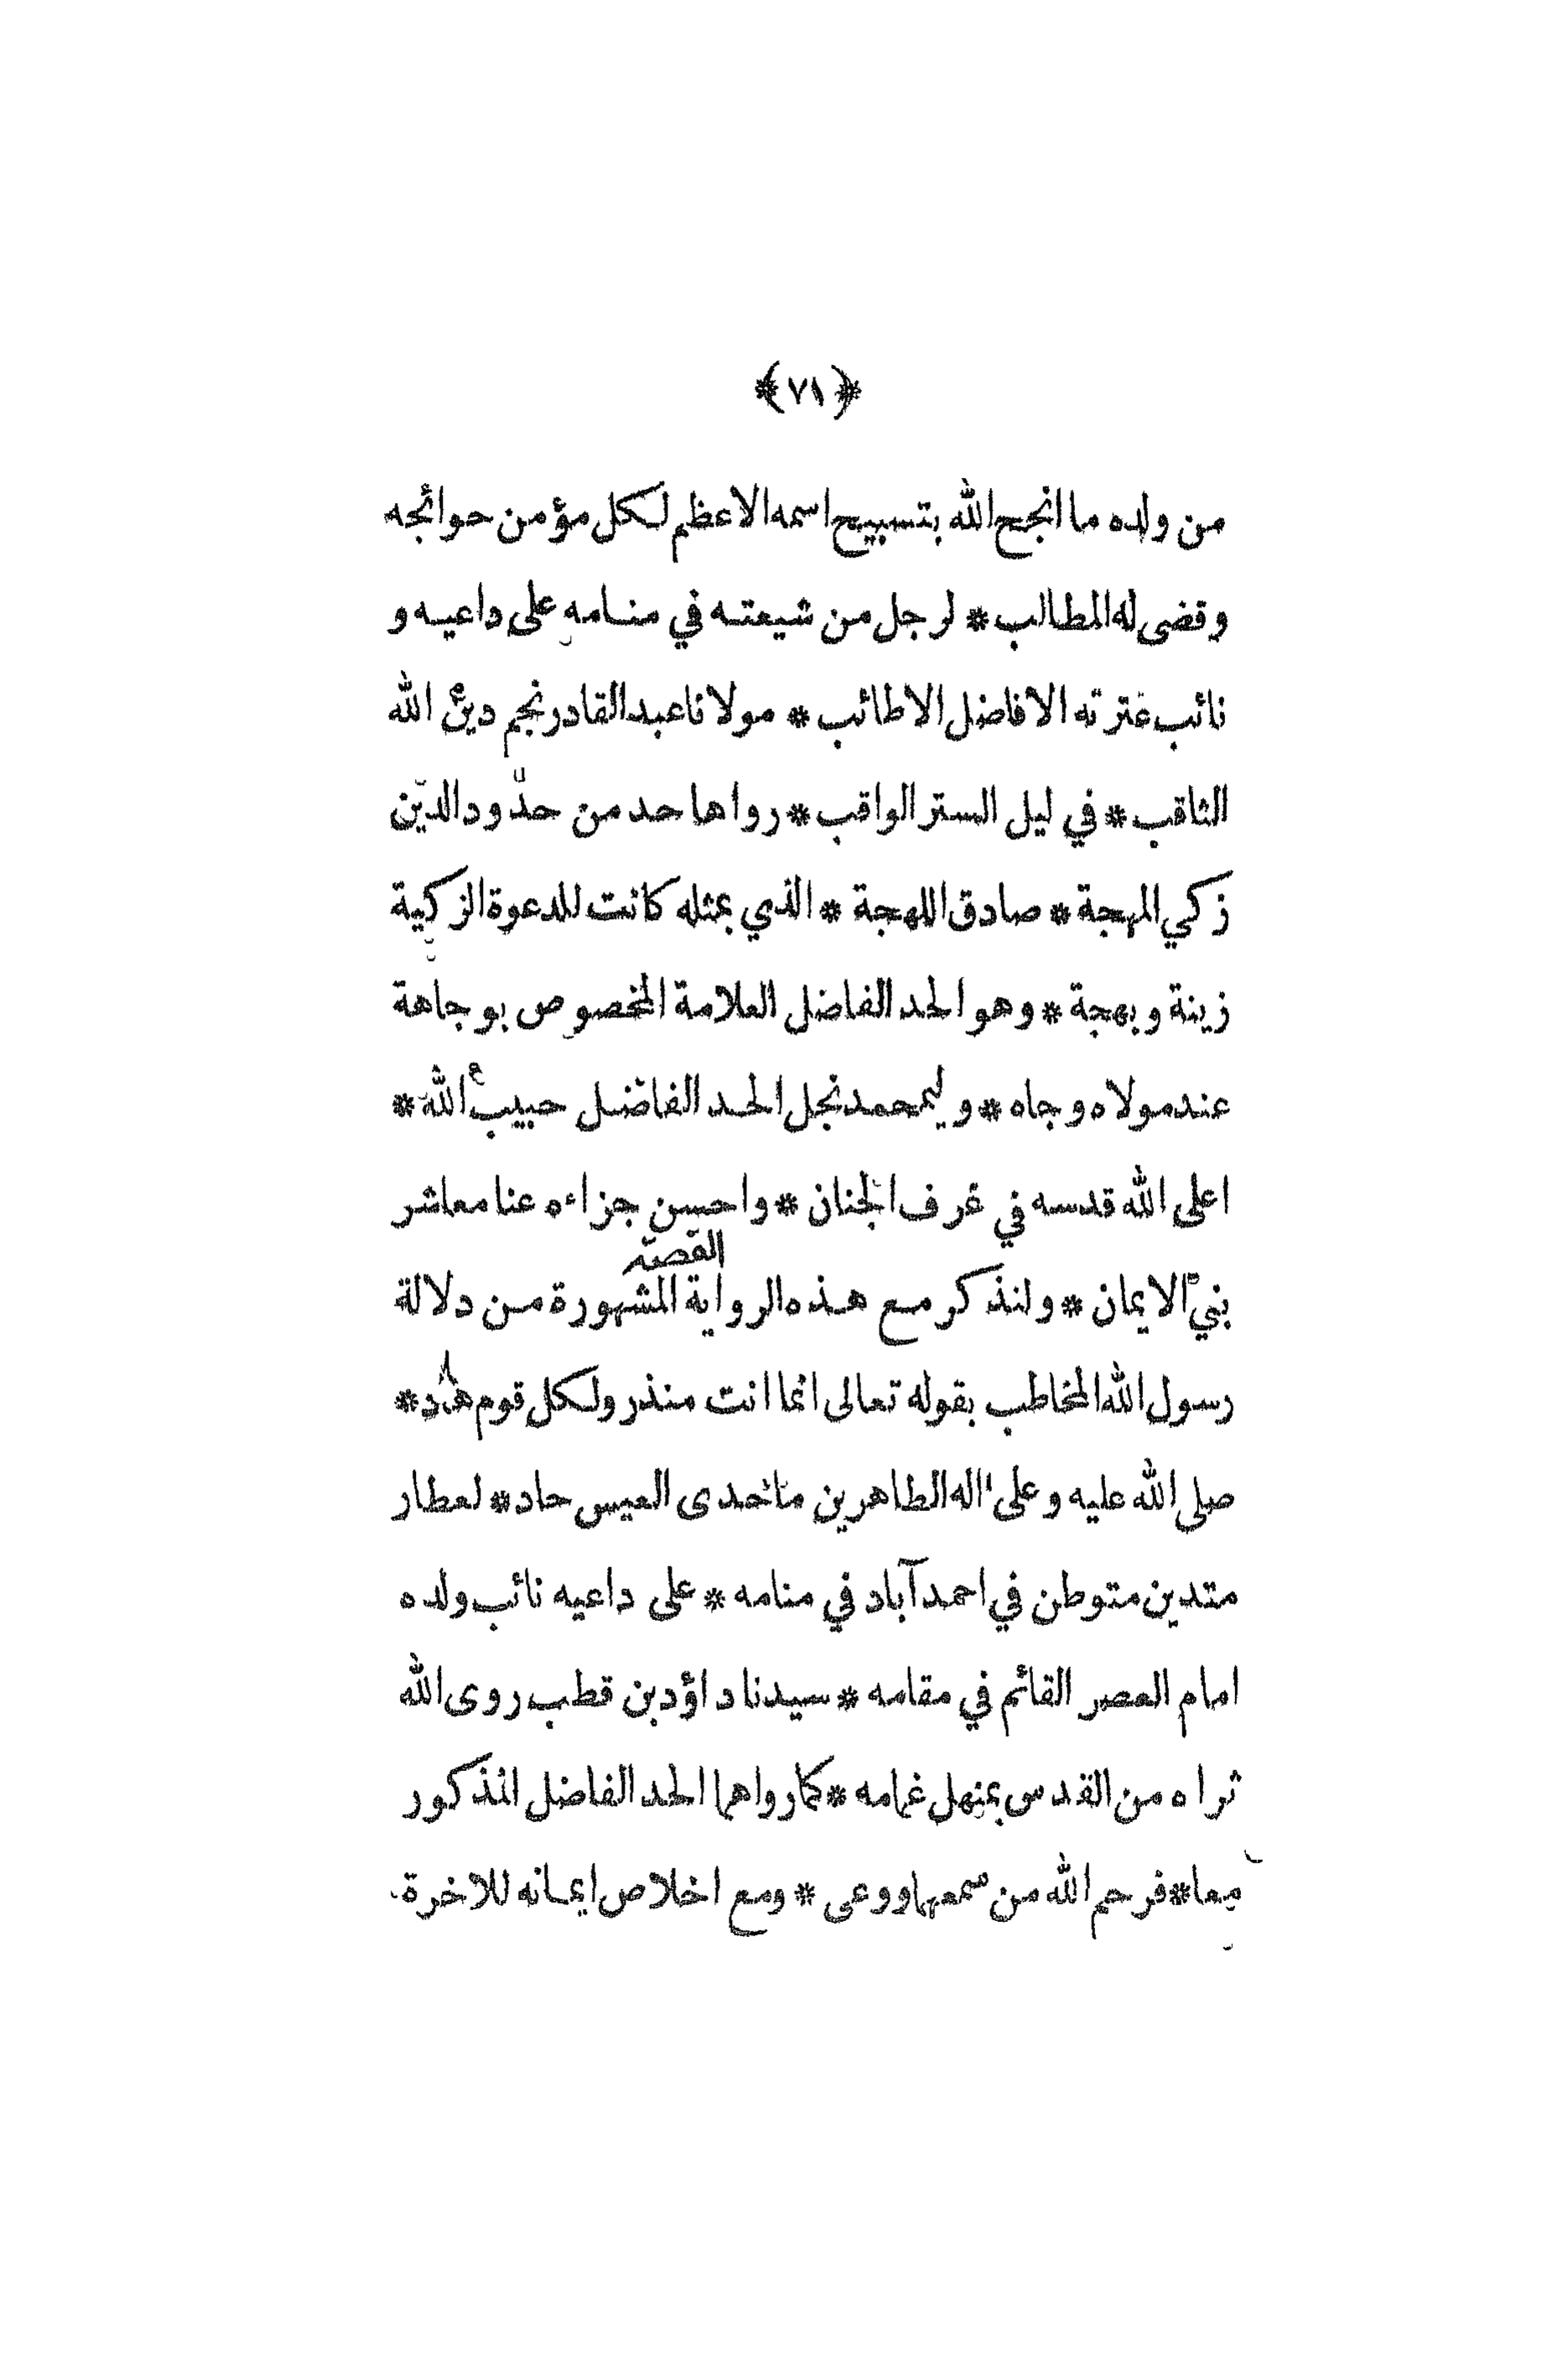 ﴿٧١﴾
من ولده ما انجح الله بتسبيح اسمه الاعظم لكل مؤمن حوائجه
وقضى له المطالب * لرجل من شيعته في منامه على داعيه و
نائب عترته الافاضل الاطائب * مولانا عبد القادر نجم دين الله
الثاقب * في ليل الستر الواقب * رواها حد من حدّود الديّن
زكي المهجة * صادق اللهجة * الذي بمثله كانت للدعوة الزكية
زينة وبهجة * وهو الحد الفاضل العلامة المخصوص بوجاهة
عند مولاه وجاه * وليمحمد نجل الحد الفاضل حبيب الله *
اعلى الله قدسه في غرف الجنان * واحسن جزاءه عنا معاشر
القصة
بني الايمان * ولنذكر مع هذه الرواية المشهورة من دلالة
رسول الله المخاطب بقوله تعالى انما انت منذر ولكل قوم هاد *
صلى الله عليه وعلى اله الطاهرين ما حدى العيس حاد * لعطار
متدين متوطن في احمدآباد في منامه * على داعيه نائب ولده
امام العصر القائم في مقامه * سيدنا داؤد بن قطب روى الله
ثراه من القدس بمنهل غمامه * كما رواهما الحد الفاضل المذكور
معا * فرحم الله من سمعهما ووعى * ومع اخلاص ايمانه للاخرة